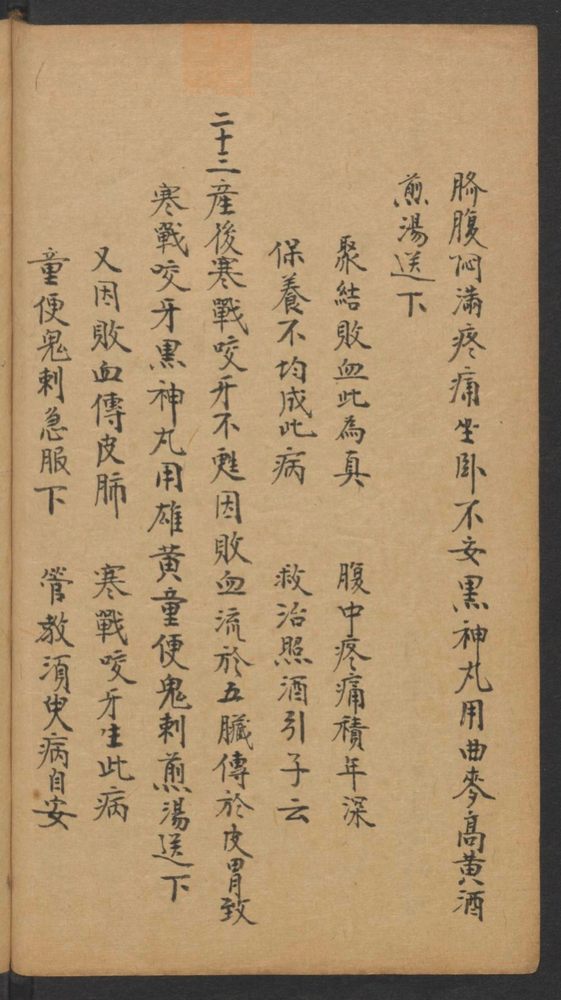 臍腹悶滿疼痛坐卧不安黑神丸用曲麥高黄酒
煎湯送下
聚結敗血此為真　腹中疼痛積年深
保養不均成此病　救治照酒引子云
二十三產後寒戰咬牙不甦因敗血流於五臟傳於皮胃致
寒戰咬牙黑神丸用雄黄童便鬼刺煎湯送下
又因敗血傳皮肺　寒戰咬牙生此病
童便鬼刺急服下　管教須臾病自安